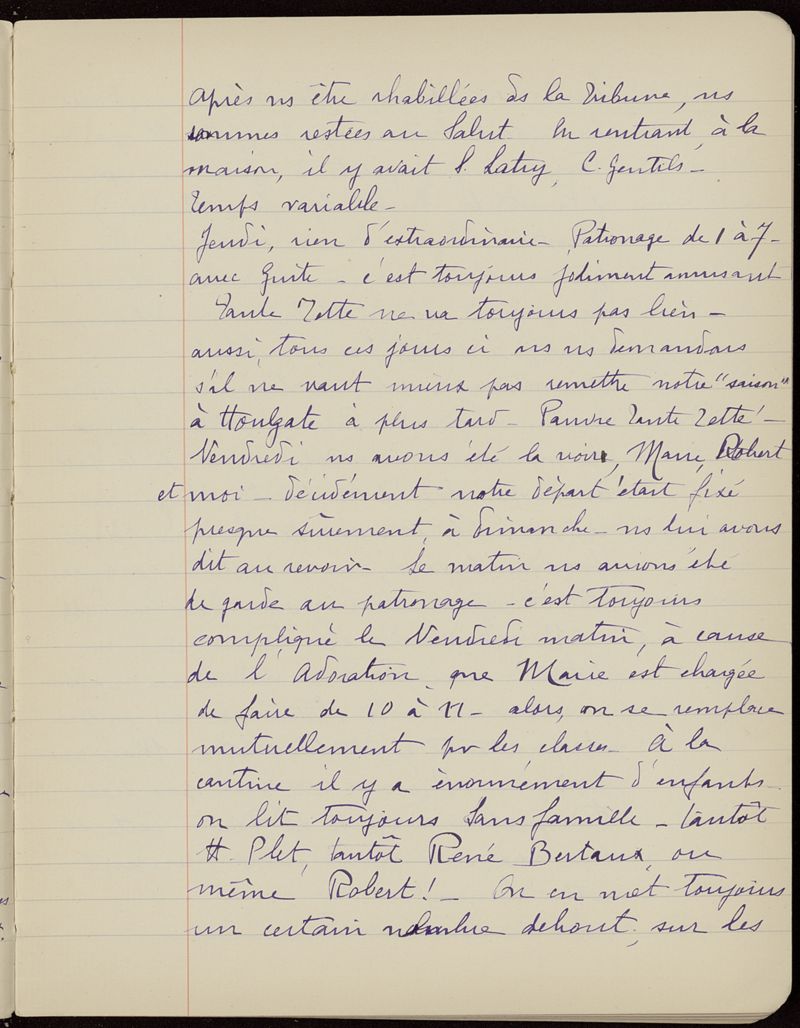 après ns être rhabillées ds la Tribune, ns
sommes restées au Salut En rentrant à la
maison, il y avait S. Latry, C. Gentils -
Temps variable -
Jeudi, rien d'extraordinaire - Patronage de 1 à 7 -
avec Guite - c'est toujours joliment amusant
Tante Zette ne va toujours pas bien -
aussi, tous ces jours ci ns ns demandons
s'il ne vaut mieux pas remettre notre "saison"
à Houlgate à plus tard - Pauvre Tante Zette! -
Vendredi ns avons été la voir, Marie, Robert
et moi - décidément notre départ était fixé
presque sûrement, à dimanche - ns lui avons
dit au revoir - Le matin ns avions été
de garde au patronage - c'est toujours
compliqué le Vendredi matin, à cause
de l'Adoration que Marie est chargée
de faire de 10 à 11 - alors, on se remplace
mutuellement pr les classes - À la
cantine il y a énormément d'enfants -
on lit toujours Sans famille - tantôt
H. Plet, tantôt René Bertaux, ou
même Robert! - On en met toujours
un certain nombre debout, sur les